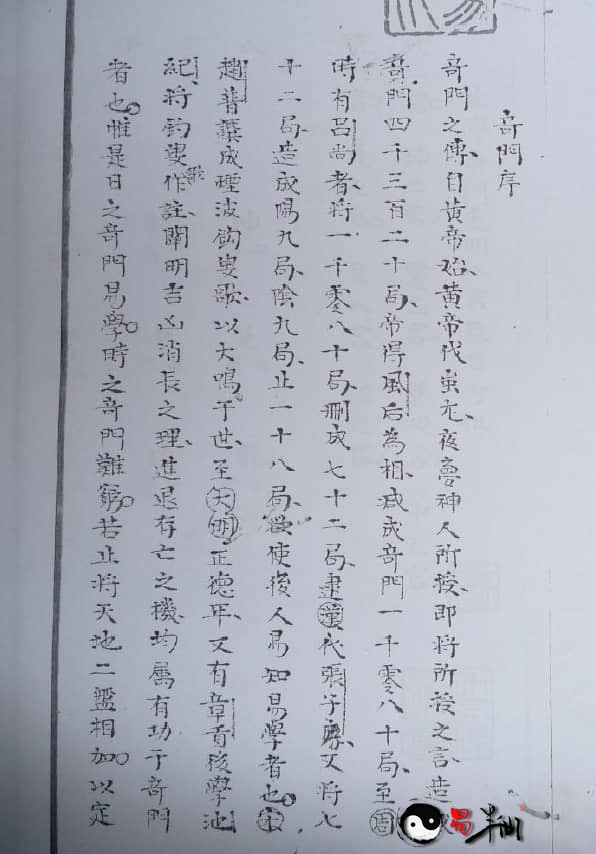 奇門序
奇門之傳自黃帝始黃帝代蚩尤夜夢神人所授即將所授之言造成
奇門四千三百二十局帝得風后為相減成奇門一千零八十局至周
時有吕尚者將一千零八十局刪成七十二局逮漢代張子房又將七
十二局造成陽九局陰九局止一十八局使後人易知易學者也宋
趙普譔成煙波釣叟歌以大鳴于世至大明正德年又有章貢後學池
紀將釣叟歌作註闡明吉凶消長之理進退存亡之機均屬有功于奇門
者也惟是日之奇門易學時之奇門難窮若止將天地二盤相加以定
易半仙